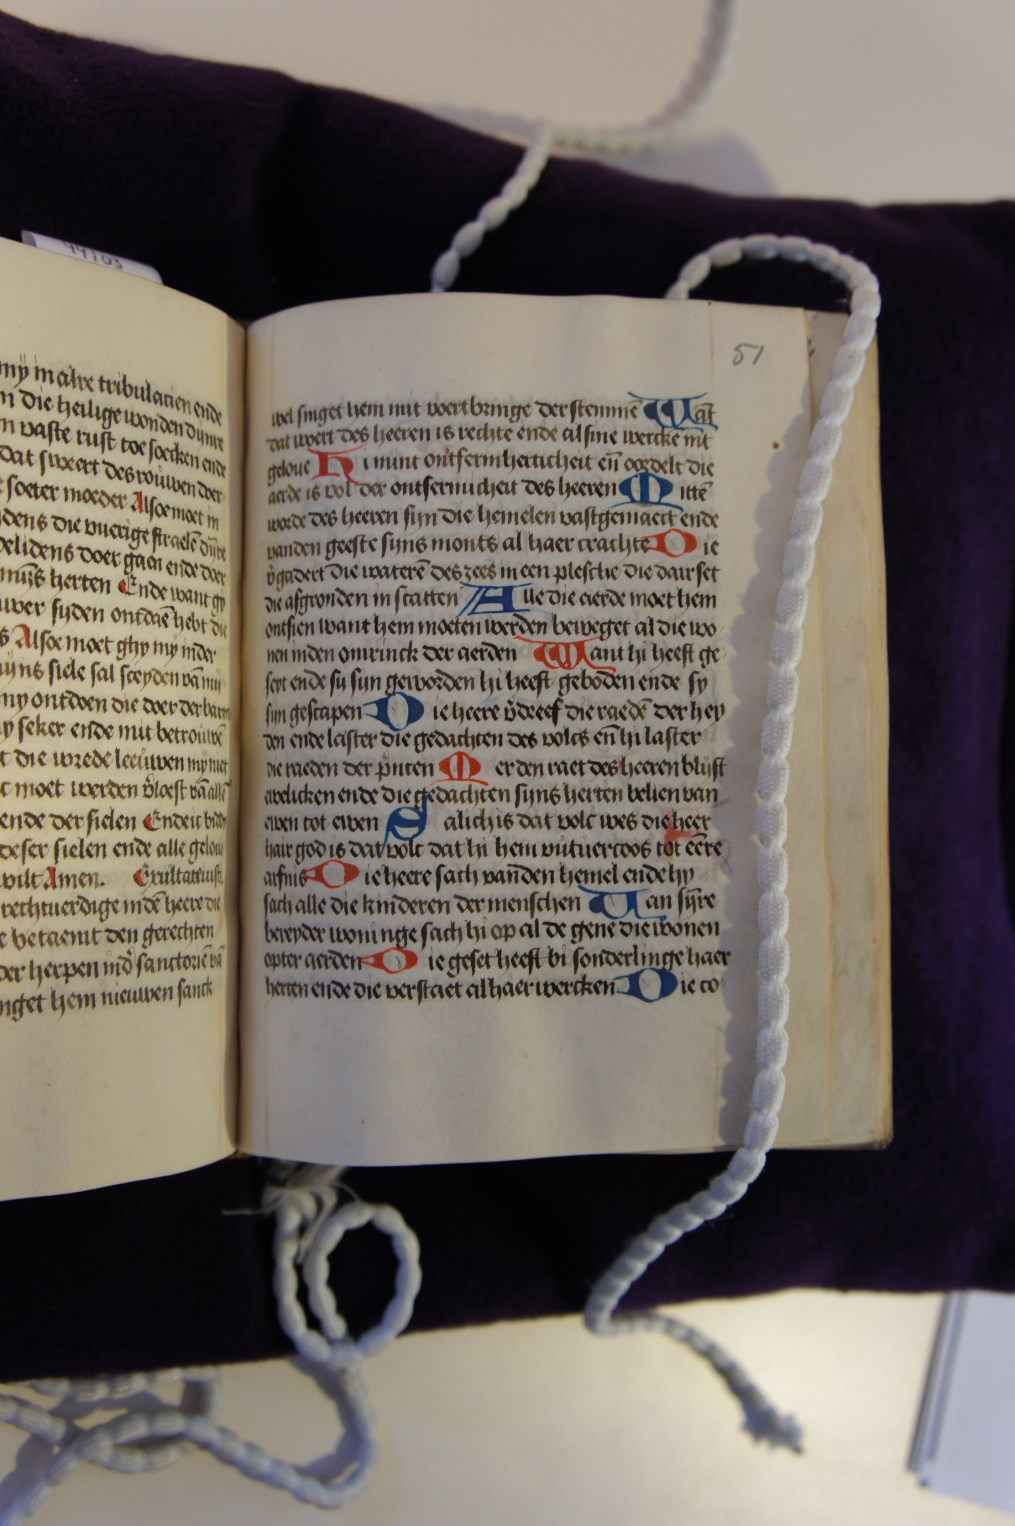 44103
my in alre tribulacien ende
n die heilige wonden dijnre
n vaste rust toe soecken ende
dat swert des rouwen doer
soeter moeder Alsoe moet in
dens die vuerige straelē dijnre
velidens doer gaen ende doer
herten Ende want gy
uwer syden ontdaē hebt die
s Alsoe moet ghy my mder
myns siele sal sceyden vā mij
my ontdoen die doer der barm
y seker ende mit betrouwē
t die wrede leeuwen my niet
t moet werden v̄loest vā allē
ende der sielen Ende ic bidd
deser sielen ende alle gelou
wilt Amen. Exultate iusti
rechtuerdige in dē heere die
e betaemt den gerechten
der herpen in dē
nget hem nieuwen sanck
51
wel singet hem mit voertbringe der stemmē Wāt
dat woert des heeren is rechte ende al sine wercke mit
geloue Hi mint ontfermherticheit eñ oordelt die
aerde is vol der ontfermicheit des heeren Mittē
worde des heeren sijn die hemelen vastgemaect ende
vanden geeste sijns monts al haer crachte Die
v̄gadert die waterē des zees in een plesche die dair set
die afgronden in scatten Alle die aerde moet hem
ontsien want hem moeten werden beweget al die wo
nen inden omrinck der aerden Want hi heeft ge
seyt ende sy sijn geworden hi heeft geboden ende sy
sijn gescapen Die heere v̄dreef die raedē der hey
den ende laster die gedachten des volcs eñ hi laster
die raeden der p̄ncen Mer den raet des heeren blijft
ewelicken ende die gedachten sijns herten belien van
ewen tot ewen Salich is dat volc wes die heer
hair god is dat volc dat hi hem vutuercoos tot eēre
aifnis Die heere sach vanden hemel ende hy
sach alle die kinderen der menschen Uan sijre
bereyder woninge sach hi op al de gene die wonen
opter aerden Die geset heeft bi sonderlinge haer
herten ende die verstaet al haer wercken Die co